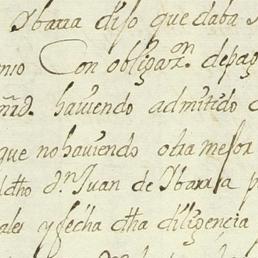 Ybarra dijo que daba
Con obligaz.n de pag
haviendo admitido
que no haviendo otra mejor
dho d.n Juan de Ybarra p
y fecha dha diligencia